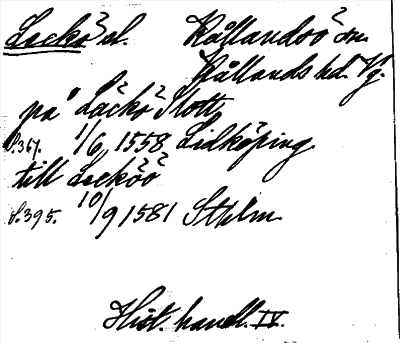 Leckö sl. Kållandsö sn.
Kållands hd. Vg.
på Läckö Slott
s.367. 1/6 1558 Lidköping
till Leeköö
s.395. 10/9 1581 Sthlm
Hist. handl. IV.